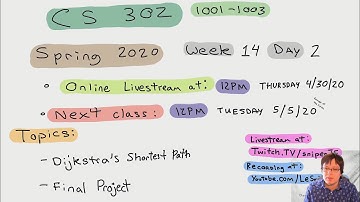 CS 302 1001-1003
Spring 2020 Week 14 Day 2
Online Livestream at: 12PM THURSDAY 4/30/20
Next class: 12PM TUESDAY 5/5/20
Topics:
- Dijkstra's Shortest Path
- Final Project
Livestream at:
Twitch.TV/
Recording at:
Youtube.com/